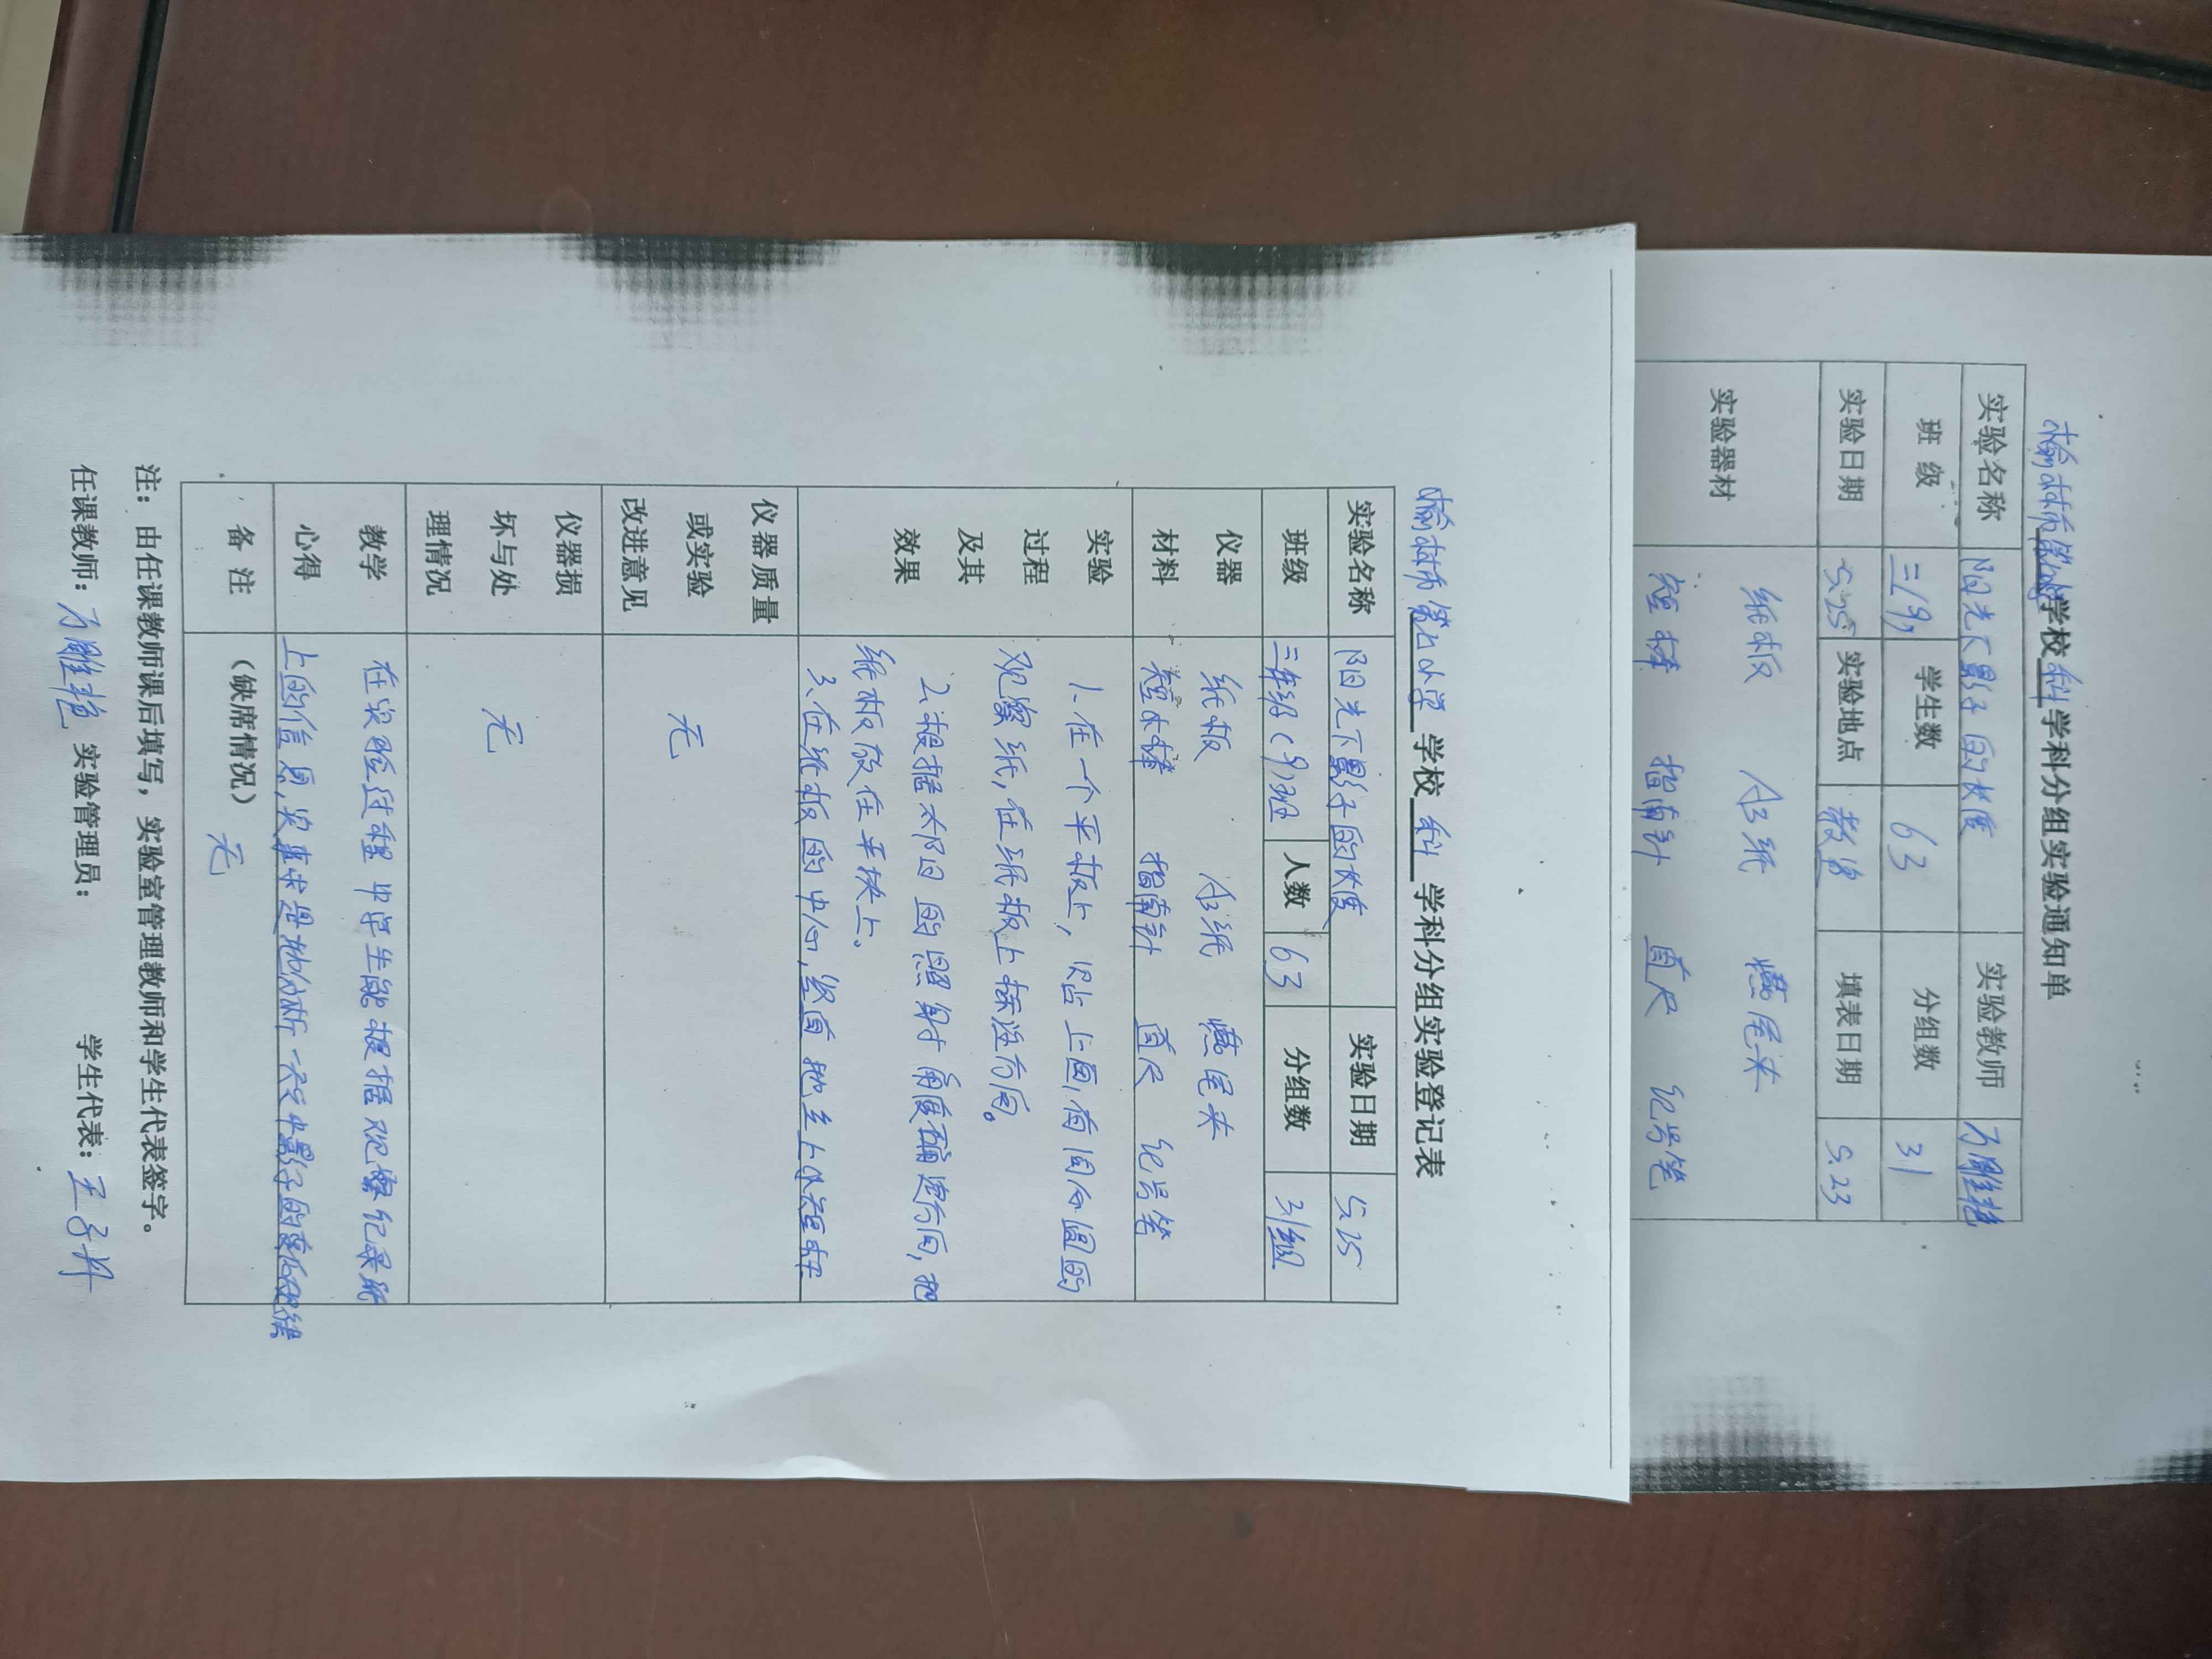 学校 科 学科分组实验通知单
实验名称 阳光下影子的长度 实验教师
班 级 三(9) 学生数 63 分组数 31
实验日期 5.25 实验地点 教室 填表日期 5.23
实验器材 纸板 A3纸 燕尾夹
短棒 指南针 直尺 记号笔
榆树市第 小学 学校 科 学科分组实验登记表
实验名称 阳光下影子的长度 实验日期 5.25
班级 三年级(9)班 人数 63 分组数 31组
仪器 纸板 A3纸 燕尾夹
材料 短木棒 指南针 直尺 记号笔
实验 1.在一个平板上,贴上画有同心圆的
过程 观察纸,在纸板上标注方向。
及其 2.根据太阳的照射角度确定方向,把
效果 纸板放在 上。
3.在纸板的中心,竖直地立上小短棒
仪器质量
或实验 无
改进意见
仪器损
坏与处 无
理情况
教学 在实验过程中学生能根据观察记录纸
心得 上的信息,实事求是地分析一天中影子的变化规律
备 注 (缺席情况) 无
注:由任课教师课后填写,实验室管理教师和学生代表签字。
任课教师: 实验管理员: 学生代表: